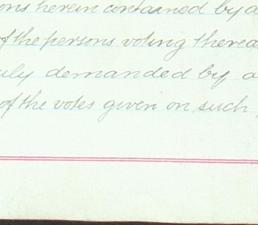 ons herein contained by a
f the persons voting therea
uly demanded by a
of the votes given on such